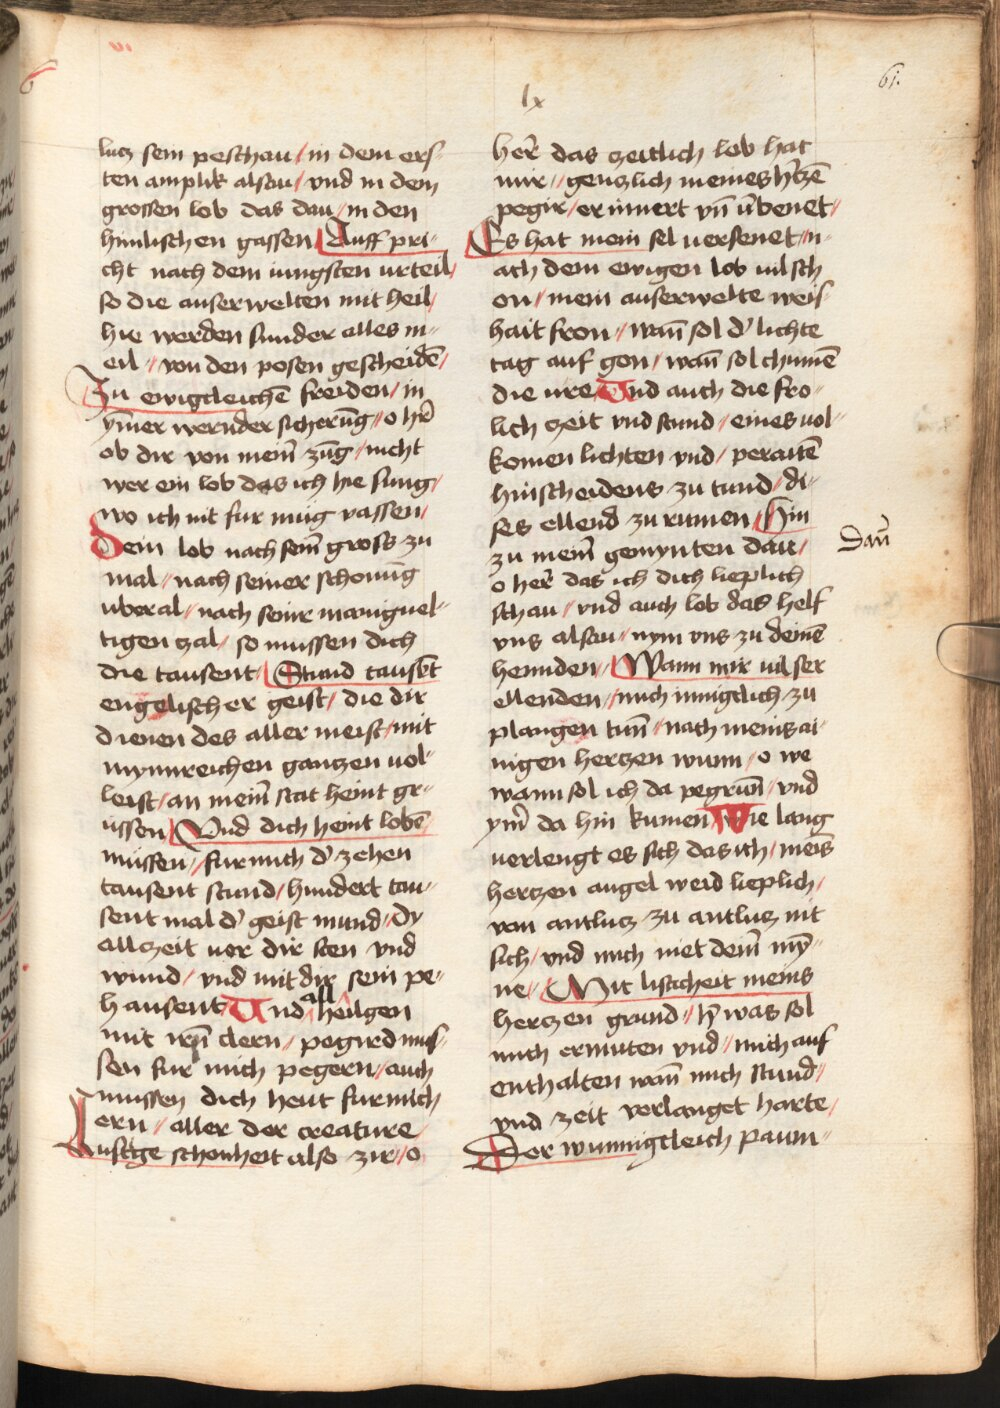 lx
61.
lucz sem peschau / in dem ers-
ten amplik alsau / vnd in dem
grossen lob das dau / in den
himlischen gassen / Auff pri-
cht nach dem iungsten urteil /
so die auserwelten mit heil /
hie werden sunder alles m-
eil / von den posen gescheidē /
Zu ewigcleichē freiden / in
ym̄er wernder sicherūg // o hr̄
ob dir von mein̄ zūg / nicht
wer ein lob das ich hie sung /
wo ich nit fur mug vassen /
Dein lob nach sein̄ gross zu
mal / nach seiner schonūg
uberal / nach seinr maniguel-
tigen zal / so mussen dich
die tausent / Stund tausēt
engelischer geist / die dir
dienen des aller meist / mit
mynnreichen ganczen uol-
leist / an mein̄ stat heint gr-
ussen / Vnd dich heint lobē
mussen / fur mich d' zehen
tausent stund / hundert tau-
sent mal d' geist mund / Dy
allczeit uor dir sten vnd
wund / vnd mit dir sein pe-
hausent Vnd all heilgen
mit irn̄ clern / pegird mus-
sen fur mich pegern / auch
mussen dich heut fur mich
ern / aller der creature
Lustige schonheit also zir / o
her̄ das zeitlich lob hat
mir / genczlich meines h'czē
pegir / erinnert vn̄ ūbenet /
Es hat mein sel uersenet / n-
ach dem ewigen lob uil sch
on / mein auserwelte weis-
hait fron / wan̄ sol d' lichte
tag auf gon / wan̄ sol chumē
die ure Vnd auch die fro-
lich czeit vnd stund / eines uol-
komen lichten vnd / peraitē
hinscheidens zu tund / di-
ses ellend zu rumen / Hin
zu mein̄ gemynten dau /
Dau̅
o her̄ das ich dich lieplich
schau / vnd auch lob das helf
vns alsau / nym vns zu deinē
henden / Wann mir uil ser
ellenden / mich innigclich zu
plangen tun̄ / nach meins ai-
nigen herczen wunn / o we
wann sol ich da pegrun̄ / vnd
ym̄ da hin kumen Wie lang
uerlengt es sich das ich / meīs
herczen angel werd lieplich /
von antlucz zu antlucz nit
sich / vnd mich niet dein̄ my-
ne / Mit listicheit meins
herczen grund // h' was sol
mich ermuten vnd / mich auf
enthalten wan̄ mich stund /
vnd zeit verlanget harte /
Der wunnigcleich paum-